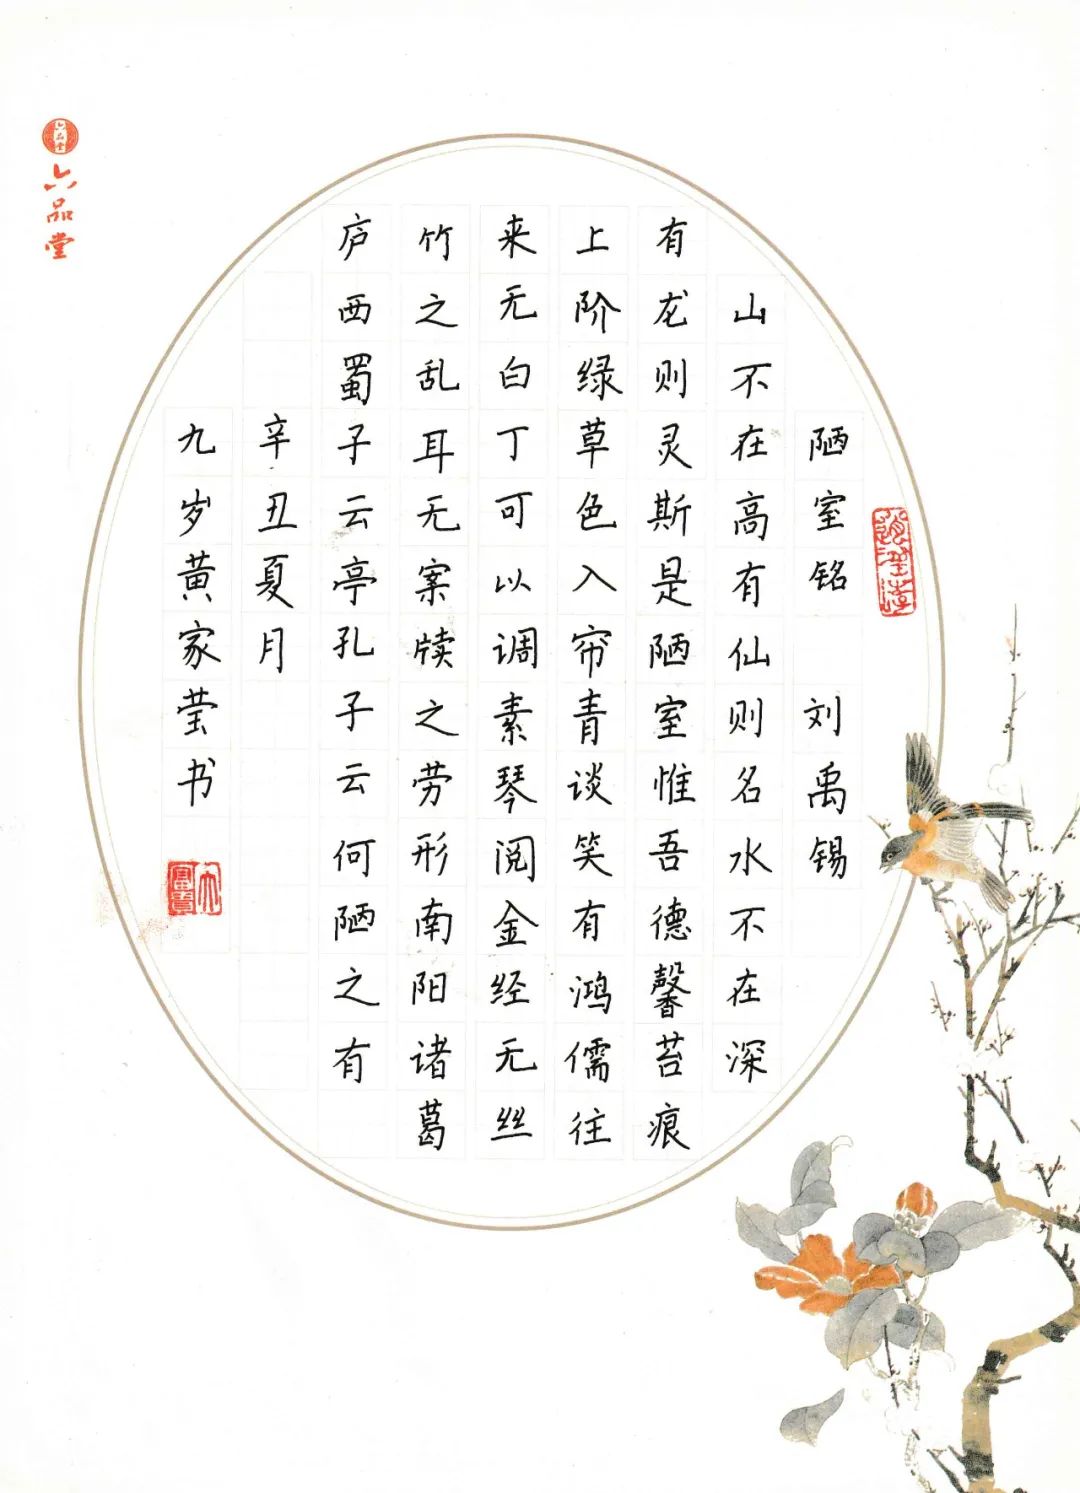 陋室铭 刘禹锡
山不在高有仙则名水不在深
有龙则灵斯是陋室惟吾德馨苔痕
上阶绿草色入帘青谈笑有鸿儒往
来无白丁可以调素琴阅金经无丝
竹之乱耳无案牍之劳形南阳诸葛
庐西蜀子云亭孔子云何陋之有
辛丑夏月
九岁黄家莹书
大富貴
六品堂
六品堂